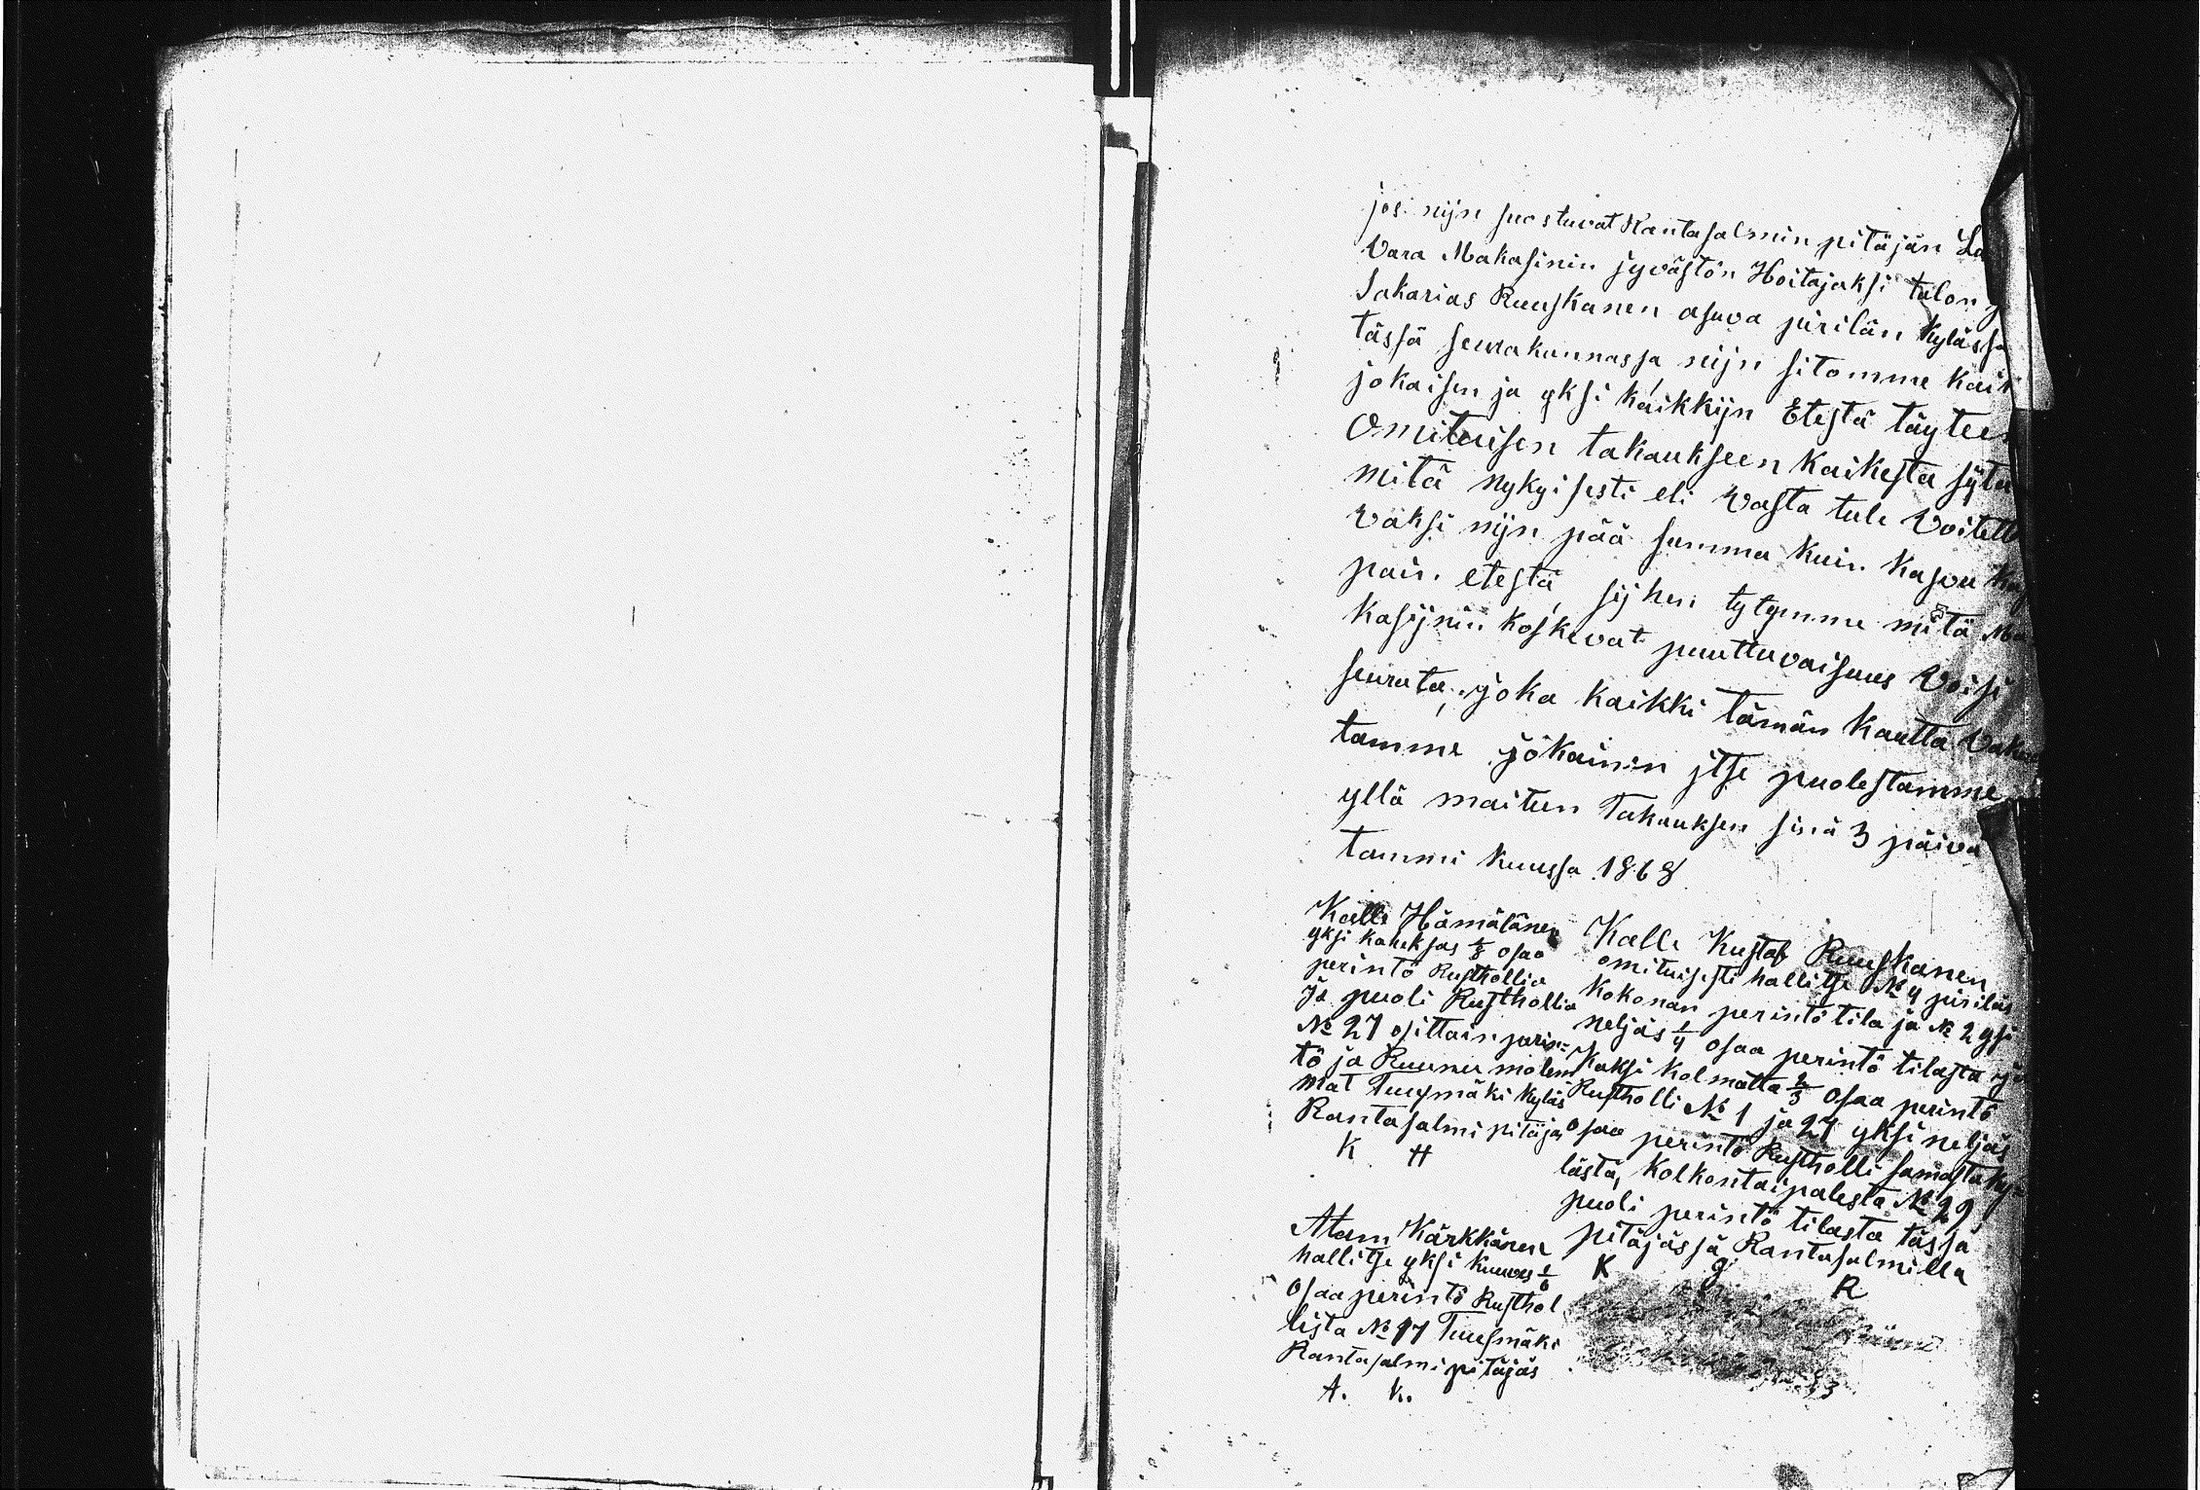 jos nijn suostuvat Rantasalmin pitäjän La
Vara Makasinin jyvästön Hoitajaksi talon
Sakarias Ruuskanen asuva pirilän Kylässä
tässä seurakunnassa nijn sitomme kaik
jokaisen ja yksi kaikkijn Etestä täyteen
Omituisen takaukseen Kaikesta syta
mitä nykyisesti eli vasta tule voitett
vaksi nijn pää summa kuin Kasvu
pain etestä, sijhen tytymme mitä Ma
kasijnin koskevat puuttuvaisuus Voisi
seurata, joka kaikki tämän Kautta Vakuu
tamme jokainen jtse puolestamme
yllä maitun Takauksen sinä 3 päivä
tammi kuussa 1868
Kalle Hämälänen
yksi kaheksas 1/8 osaa
perintö Rusthollia
ja puoli Rusthollia
№ 27 osittain perin=
tö ja Ruunu molem
mat Tuusmäki kyläs
Rantasalmi pitäjä
K H
Kalle Kustaf Ruuskanen
omituisesti hallitse № 4 pirilä
Kokonan perintö tila ja № 2 yksi
neljäs 1/4 osaa perintö tilasta ja
Kaksi kolmatta 2/3 osaa perintö
Rustholli № 1 ja 27 yksi neljäs
osaa perintö Rustholli samasta ky=
lästä, Kolkontaipalesta № 29
puoli perintö tilasta tässä
pitäjässä Rantasalmilla
K G R
Atam Kärkkänen
hallitse yksi kuuves 1/6
osaa perintö Rusthol
lista № 17 Tuusmäki
Rantasalmi pitäjäs
A. K.